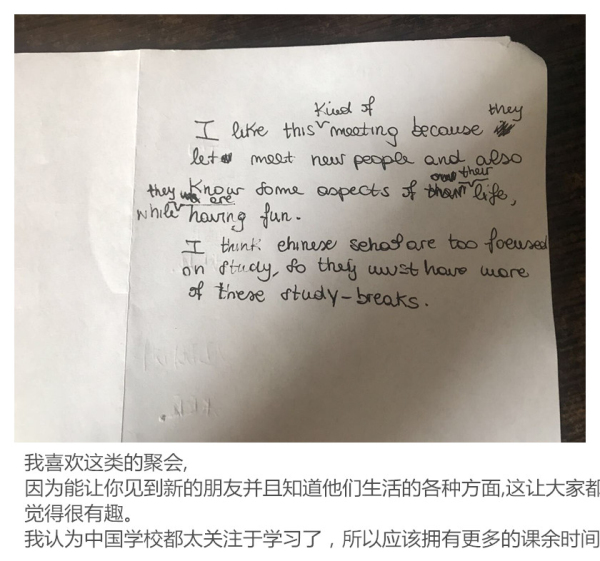 Kind of they
I like this meeting because
let meet new people and also
they are Know some aspects of their life,
while having fun.
I think chinese school are too focused
on study, so they must have more
of these study-breaks.
我喜欢这类的聚会,
因为能让你见到新的朋友并且知道他们生活的各种方面,这让大家都
觉得很有趣。
我认为中国学校都太关注于学习了，所以应该拥有更多的课余时间